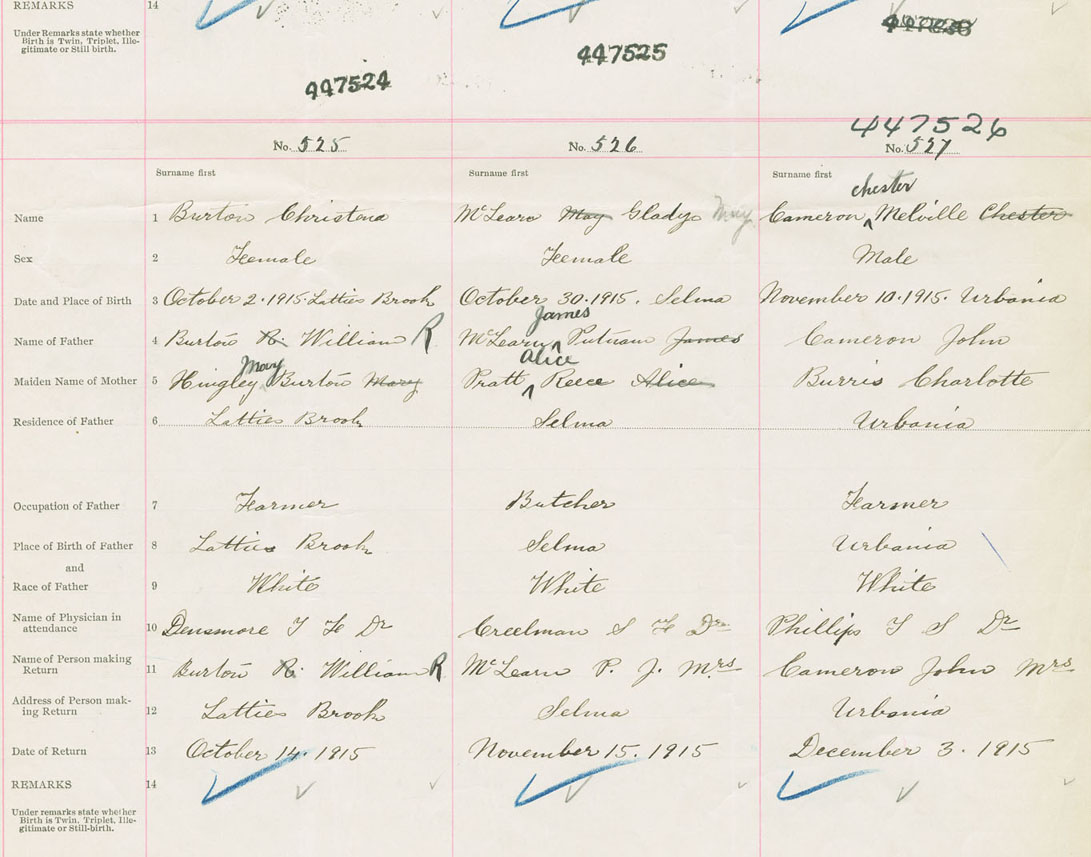 REMARKS 14
Under Remarks state whether
Birth is Twin, Triplet, Ille-
gitimate or Still birth.
447524 447525
447526
No. 525 No. 526 No. 527
Surname first Surname first Surname first
chester
Name 1 Burton Christena McLearn May Gladys May Cameron ^ Melville Chester
Sex 2 Female Female Male
Date and Place of Birth 3 October 2·1915·Latties Brook October 30·1915. Selma November 10·1915. Urbania
James
Name of Father 4 Burton R. William R McLearn ^ Putnam James Cameron John
Mary Alice
Maiden Name of Mother 5 Hingley Burton Mary Pratt ^ Reece Alice Burris Charlotte
Residence of Father 6 Latties Brook Selma Urbania
Occupation of Father 7 Farmer Butcher Farmer
Place of Birth of Father 8 Latties Brook Selma Urbania
and
Race of Father 9 White White White
Name of Physician in
attendance 10 Densmore F F Dr Creelman S F Dr Phillips T S Dr
Name of Person making
Return 11 Burton R. William R McLearn P. J. Mrs Cameron John Mrs
Address of Person mak-
ing Return 12 Latties Brook Selma Urbania
Date of Return 13 October 14. 1915 November 15. 1915 December 3. 1915
REMARKS 14
Under remarks state whether
Birth is Twin, Triplet, Ille-
gitimate or Still-birth.